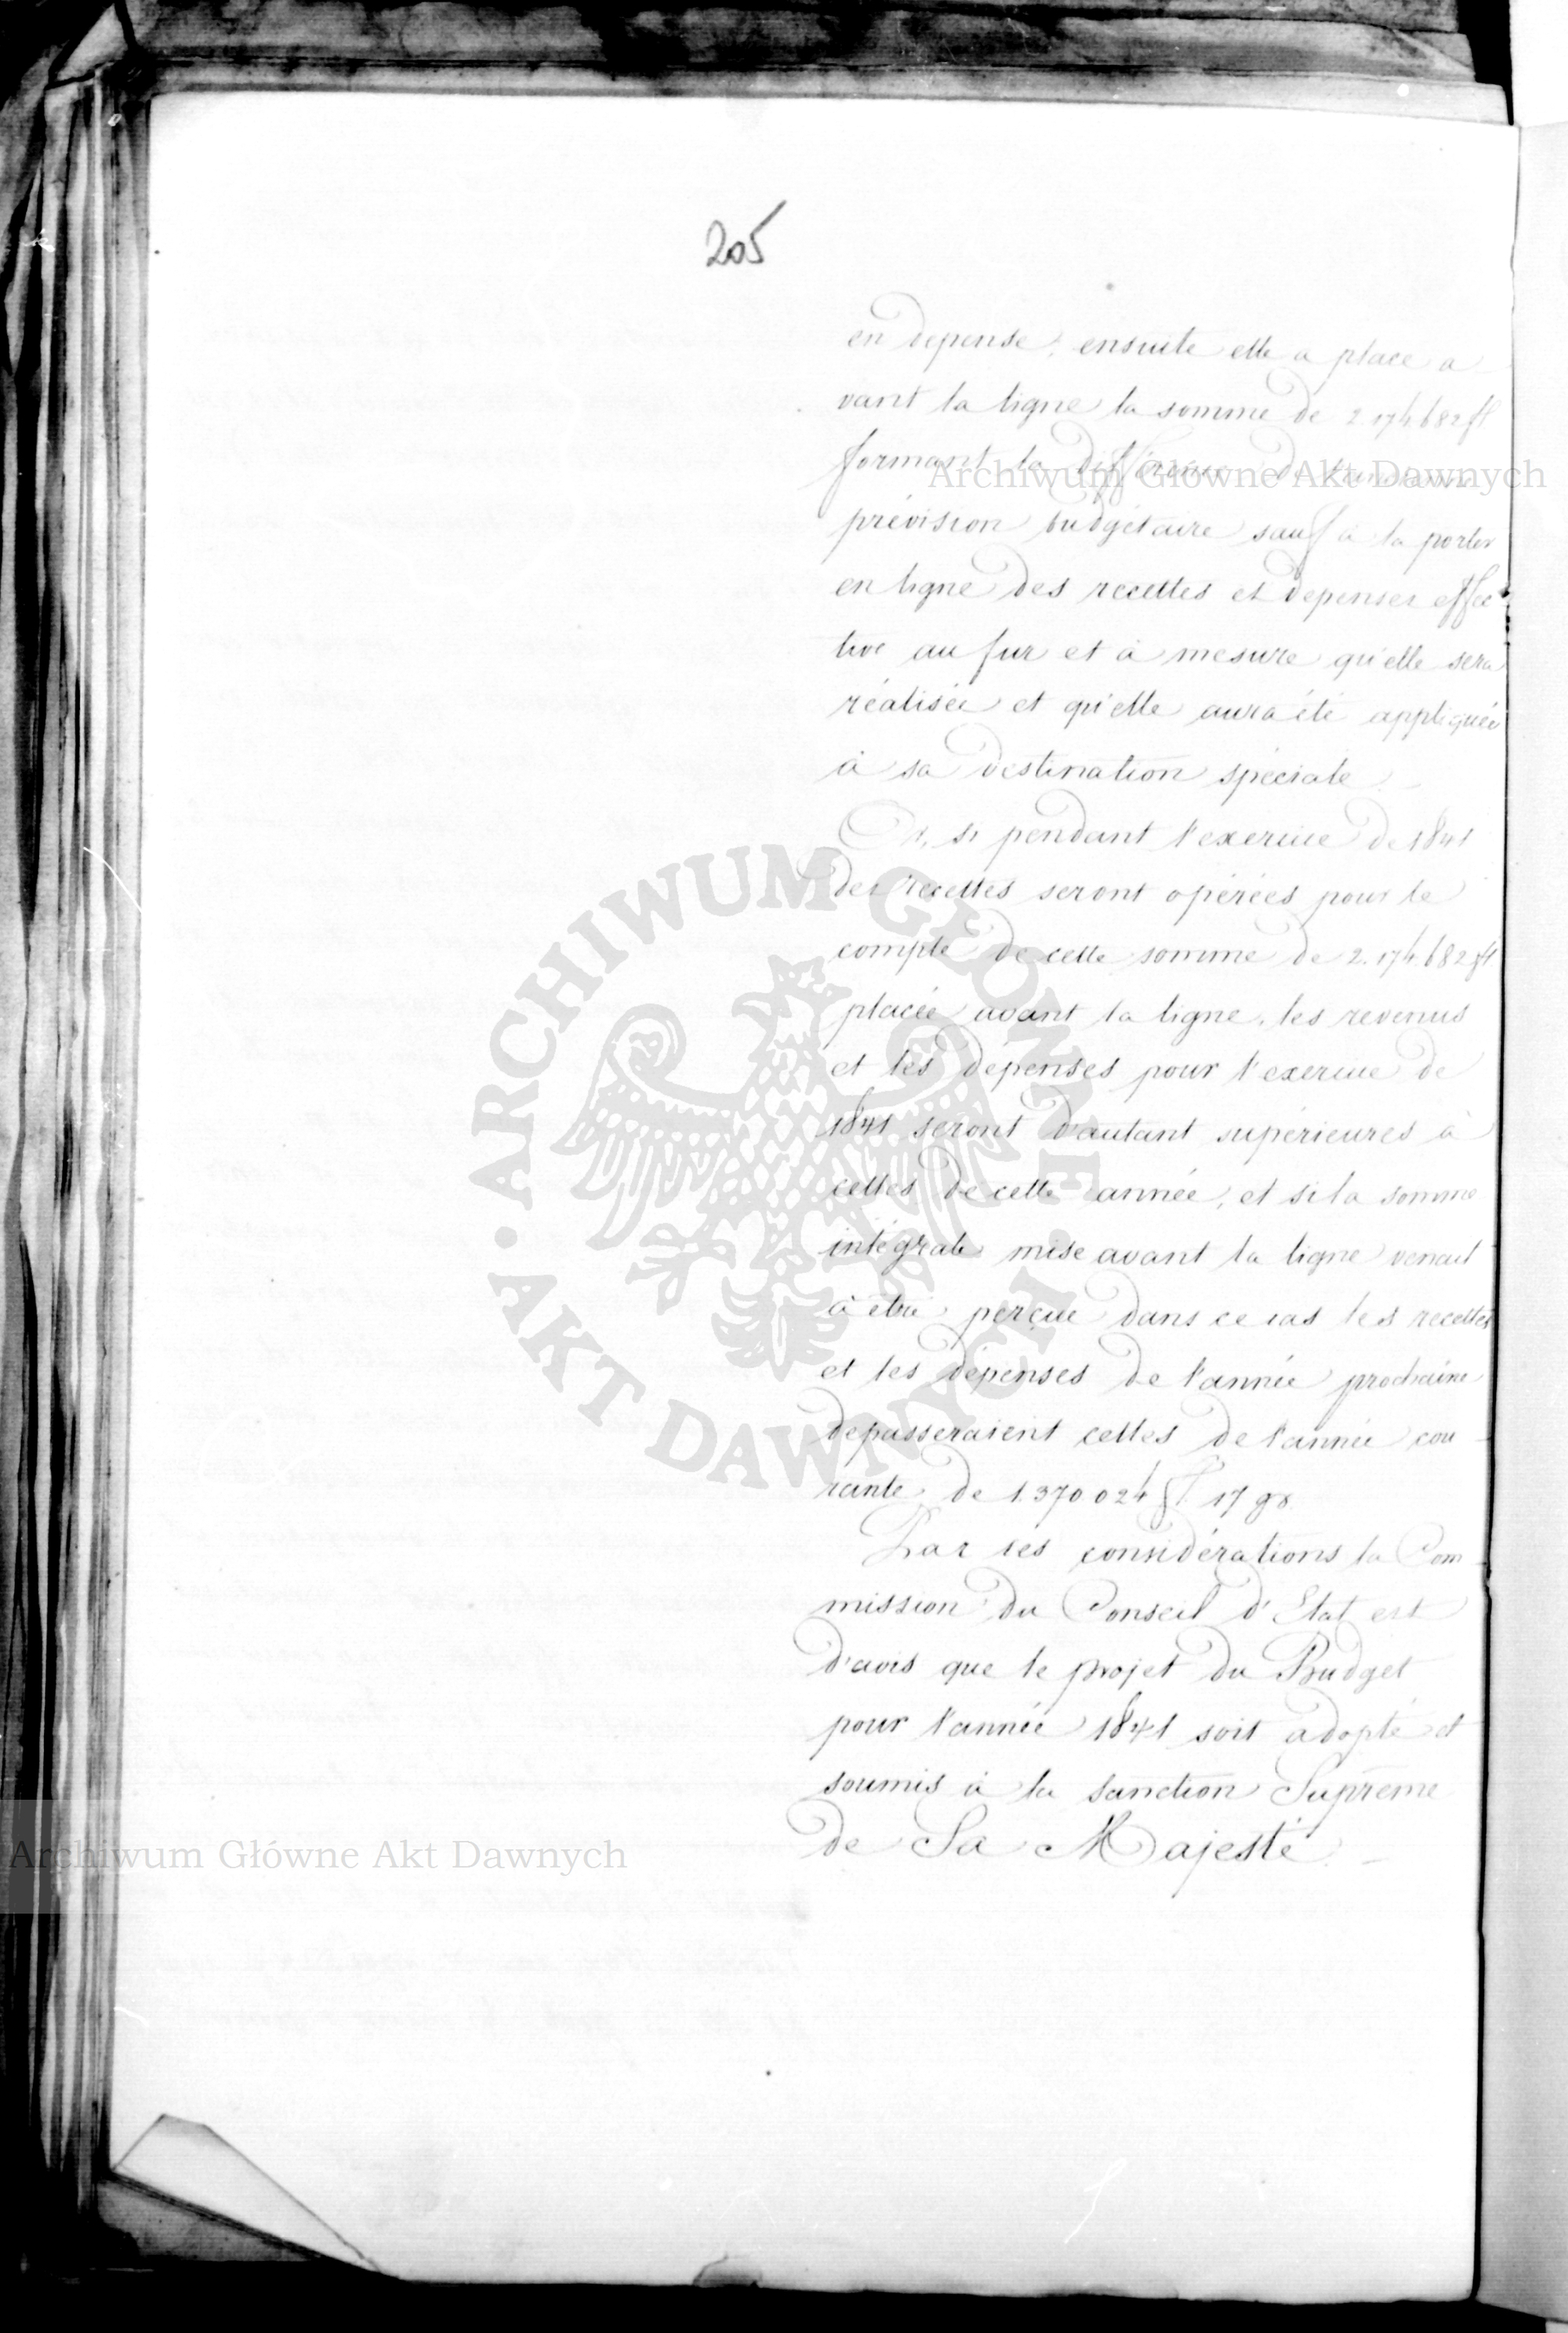 205
en dépense; ensuite elle a placé a
vant la ligne la somme de 2.174.682 fl
formant la différence de
prévision budgétaire sauf à la porter
en ligne des recettes et dépenses effec
tive au fur et à mesure qu'elle sera
réalisée et qu'elle aura été appliquée
à sa destination spéciale.
Or, si pendant l'exercice de 1841
des recettes seront opérées pour le
compte de cette somme de 2.174.682 fl
placée avant la ligne, les revenus
et les dépenses pour l'exercice de
1841 seront d'autant supérieures à
celles de cette année, et si la somme
intégrale mise avant la ligne venait
à être perçue dans ce cas les recettes
et les dépenses de l'année prochaine
dépasseraient celles de l'année cou
rante de 1.370.024 fl. 17 gr.
Par ces considérations la Com
mission du Conseil d'Etat est
d'avis que le projet du Budget
pour l'année 1841 soit adopté et
soumis à la sanction Suprême
de Sa Majesté. _
Archiwum Główne Akt Dawnych
ARCHIWUM GŁÓWNE • AKT DAWNYCH •
Archiwum Główne Akt Dawnych